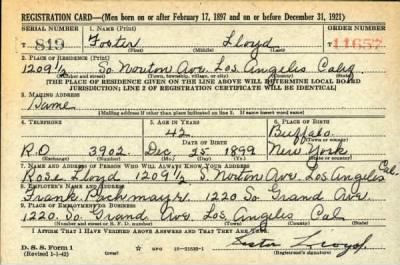 REGISTRATION CARD—(Men born on or after February 17, 1897 and on or before December 31, 1921)
SERIAL NUMBER 1. NAME (Print) ORDER NUMBER
T 819 Foster Lloyd 11657
(First) (Middle) (Last)
2. PLACE OF RESIDENCE (Print)
1209 1/2 So Norton Ave Los Angeles Calif
(Number and street) (Town, township, village, or city) (County) (State)
[THE PLACE OF RESIDENCE GIVEN ON THE LINE ABOVE WILL DETERMINE LOCAL BOARD
JURISDICTION; LINE 2 OF REGISTRATION CERTIFICATE WILL BE IDENTICAL]
3. MAILING ADDRESS
Same
[Mailing address if other than place indicated on line 2. If same insert word same]
4. TELEPHONE 5. AGE IN YEARS 6. PLACE OF BIRTH
42 Buffalo
DATE OF BIRTH (Town or county)
R.O 3902 Dec 25 1899 New York
(Exchange) (Number) (Mo.) (Day) (Yr.) (State or country)
7. NAME AND ADDRESS OF PERSON WHO WILL ALWAYS KNOW YOUR ADDRESS
Rose Lloyd 1209 1/2 S Norton Ave Los Angeles Cal.
8. EMPLOYER'S NAME AND ADDRESS
Frank Pachmayr 1220 So Grand Ave.
9. PLACE OF EMPLOYMENT OR BUSINESS
1220 So Grand Ave Los Angeles Cal
(Number and street or R. F. D. number) (Town) (County) (State)
I AFFIRM THAT I HAVE VERIFIED ABOVE ANSWERS AND THAT THEY ARE TRUE.
D. S. S. Form 1
(Revised 1-1-42) GPO Foster Lloyd
(Registrant's signature)